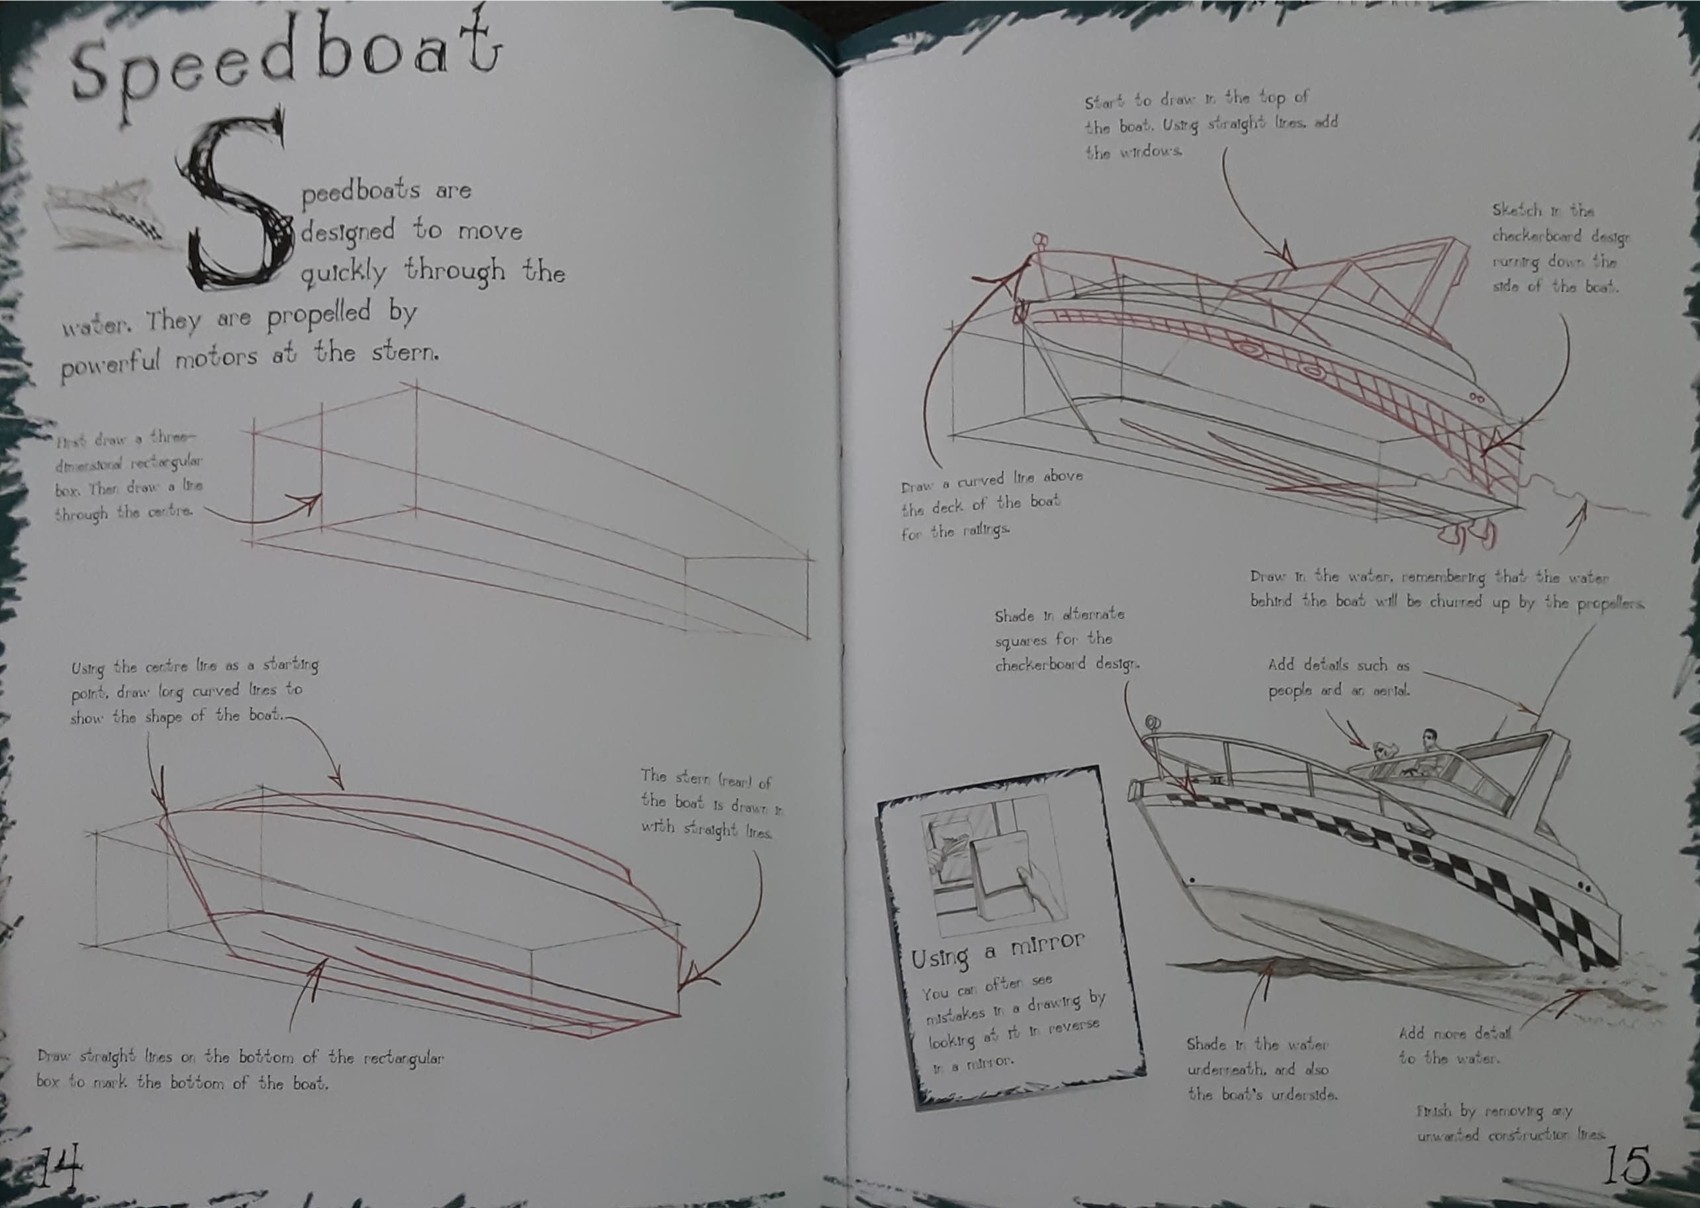 Speedboat
Speedboats are
designed to move
quickly through the
water. They are propelled by
powerful motors at the stern.
First draw a three-
dimensional rectangular
box. Then draw a line
through the centre.
Using the centre line as a starting
point, draw long curved lines to
show the shape of the boat.
The stern (rear) of
the boat is drawn in
with straight lines.
Draw straight lines on the bottom of the rectangular
box to mark the bottom of the boat.
14
Start to draw in the top of
the boat. Using straight lines, add
the windows.
Sketch in the
checkerboard design
running down the
side of the boat.
Draw a curved line above
the deck of the boat
for the railings.
Draw in the water, remembering that the water
behind the boat will be churned up by the propellers.
Shade in alternate
squares for the
checkerboard design.
Add details such as
people and an aerial.
Using a mirror
You can often see
mistakes in a drawing by
looking at it in reverse
in a mirror.
Shade in the water
underneath, and also
the boat's underside.
Add more detail
to the water.
Finish by removing any
unwanted construction lines.
15